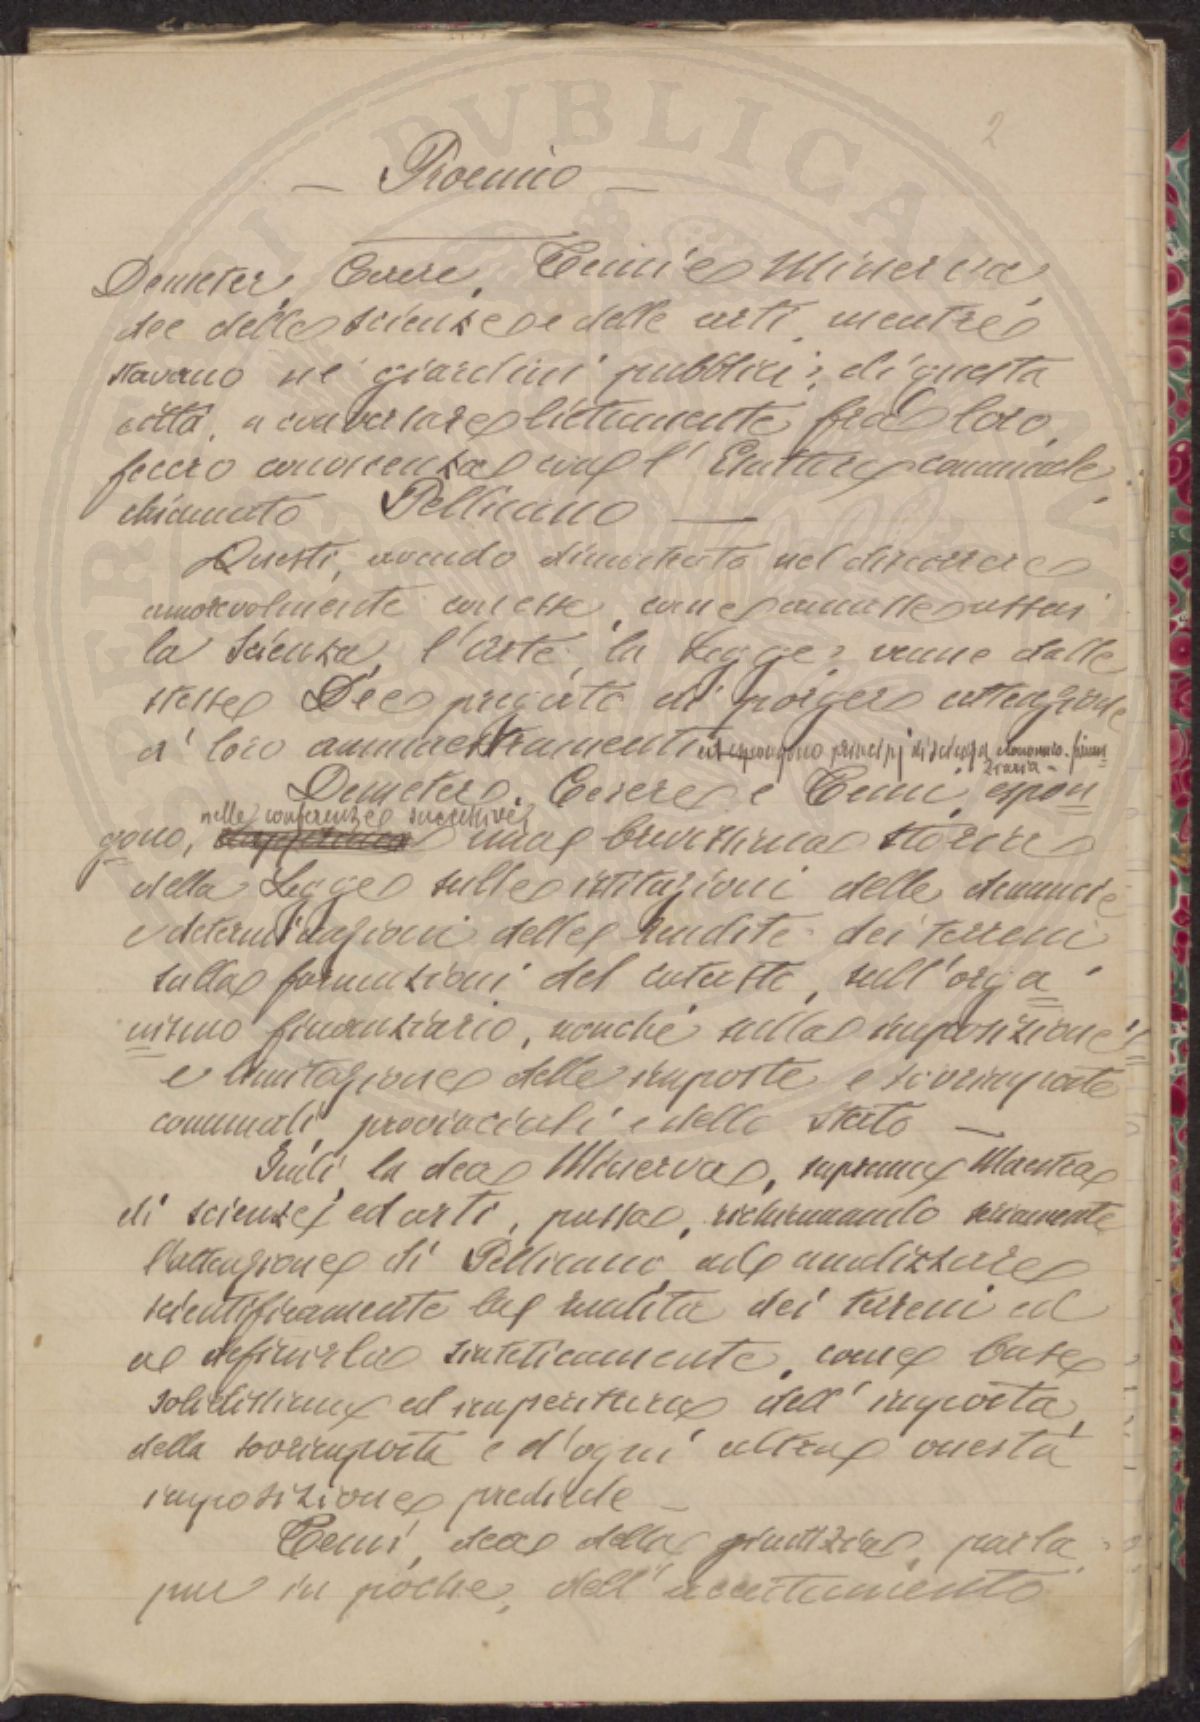 2
— Proemio —
Demeter, Cerere, Temi e Minerva,
dee delle scienze e delle arti, mentre
stavano ne' giardini pubblici di questa
città, a conversare lietamente fra loro,
fecero conoscenza con l' comunale,
chiamato Pellicano —
Questi, avendo dimostrato nel discorrere
amorevolmente con esse, come amasse assai
la Scienza, l'Arte, la Legge, venne dalle
stesse Dee pregato di porgere attenzione
a' loro ammaestramenti
ed espongono principj di scienza economico-finan
ziaria —
Demeter, Cerere e Temi, espon
gono, nelle conferenze successive, una brevissima storia
della Legge sulle istituzioni delle denuncie
e determinazioni delle rendite dei terreni,
sulla formazioni del catasto, sull'orga
nismo finanziario, nonchè sulla imposizione
e limitazione delle imposte e sovrimposte
comunali, provinciali e dello Stato —
Indi, la dea Minerva, suprema Maestra
di scienze ed arti, passa, richiamando seriamente
l'attenzione di Pellicano, ad analizzare
scientificamente la rendita dei terreni ed
a definirla sinteticamente, come base
solidissima ed imperittura dell' imposta,
della sovrimposta e d'ogni altra onesta
imposizione prediale —
Temi, dea della giustizia, parla
pur in poche, dell'accertamento
PVBLICA